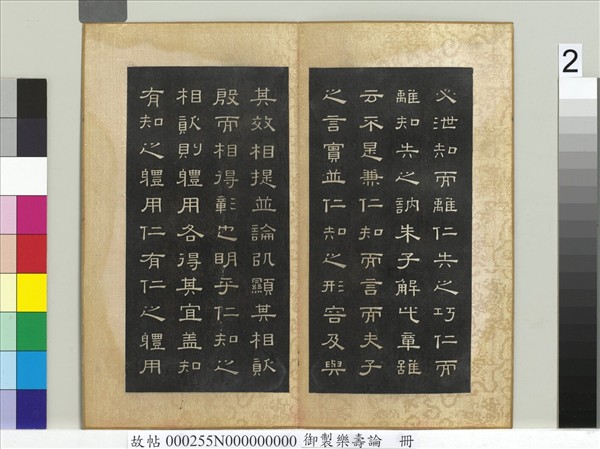 必泄知而離仁失之巧仁而
離知失之訥朱子解此章雖
云不是兼仁知而言而夫子
之言實並仁知之形容及與
其效相提並論以顯其相
殷而相得彰也明乎仁知之
相則體用各得其宜蓋知
有知之體用仁有仁之體用
2
故帖 000255N000000000 御製樂壽論 冊